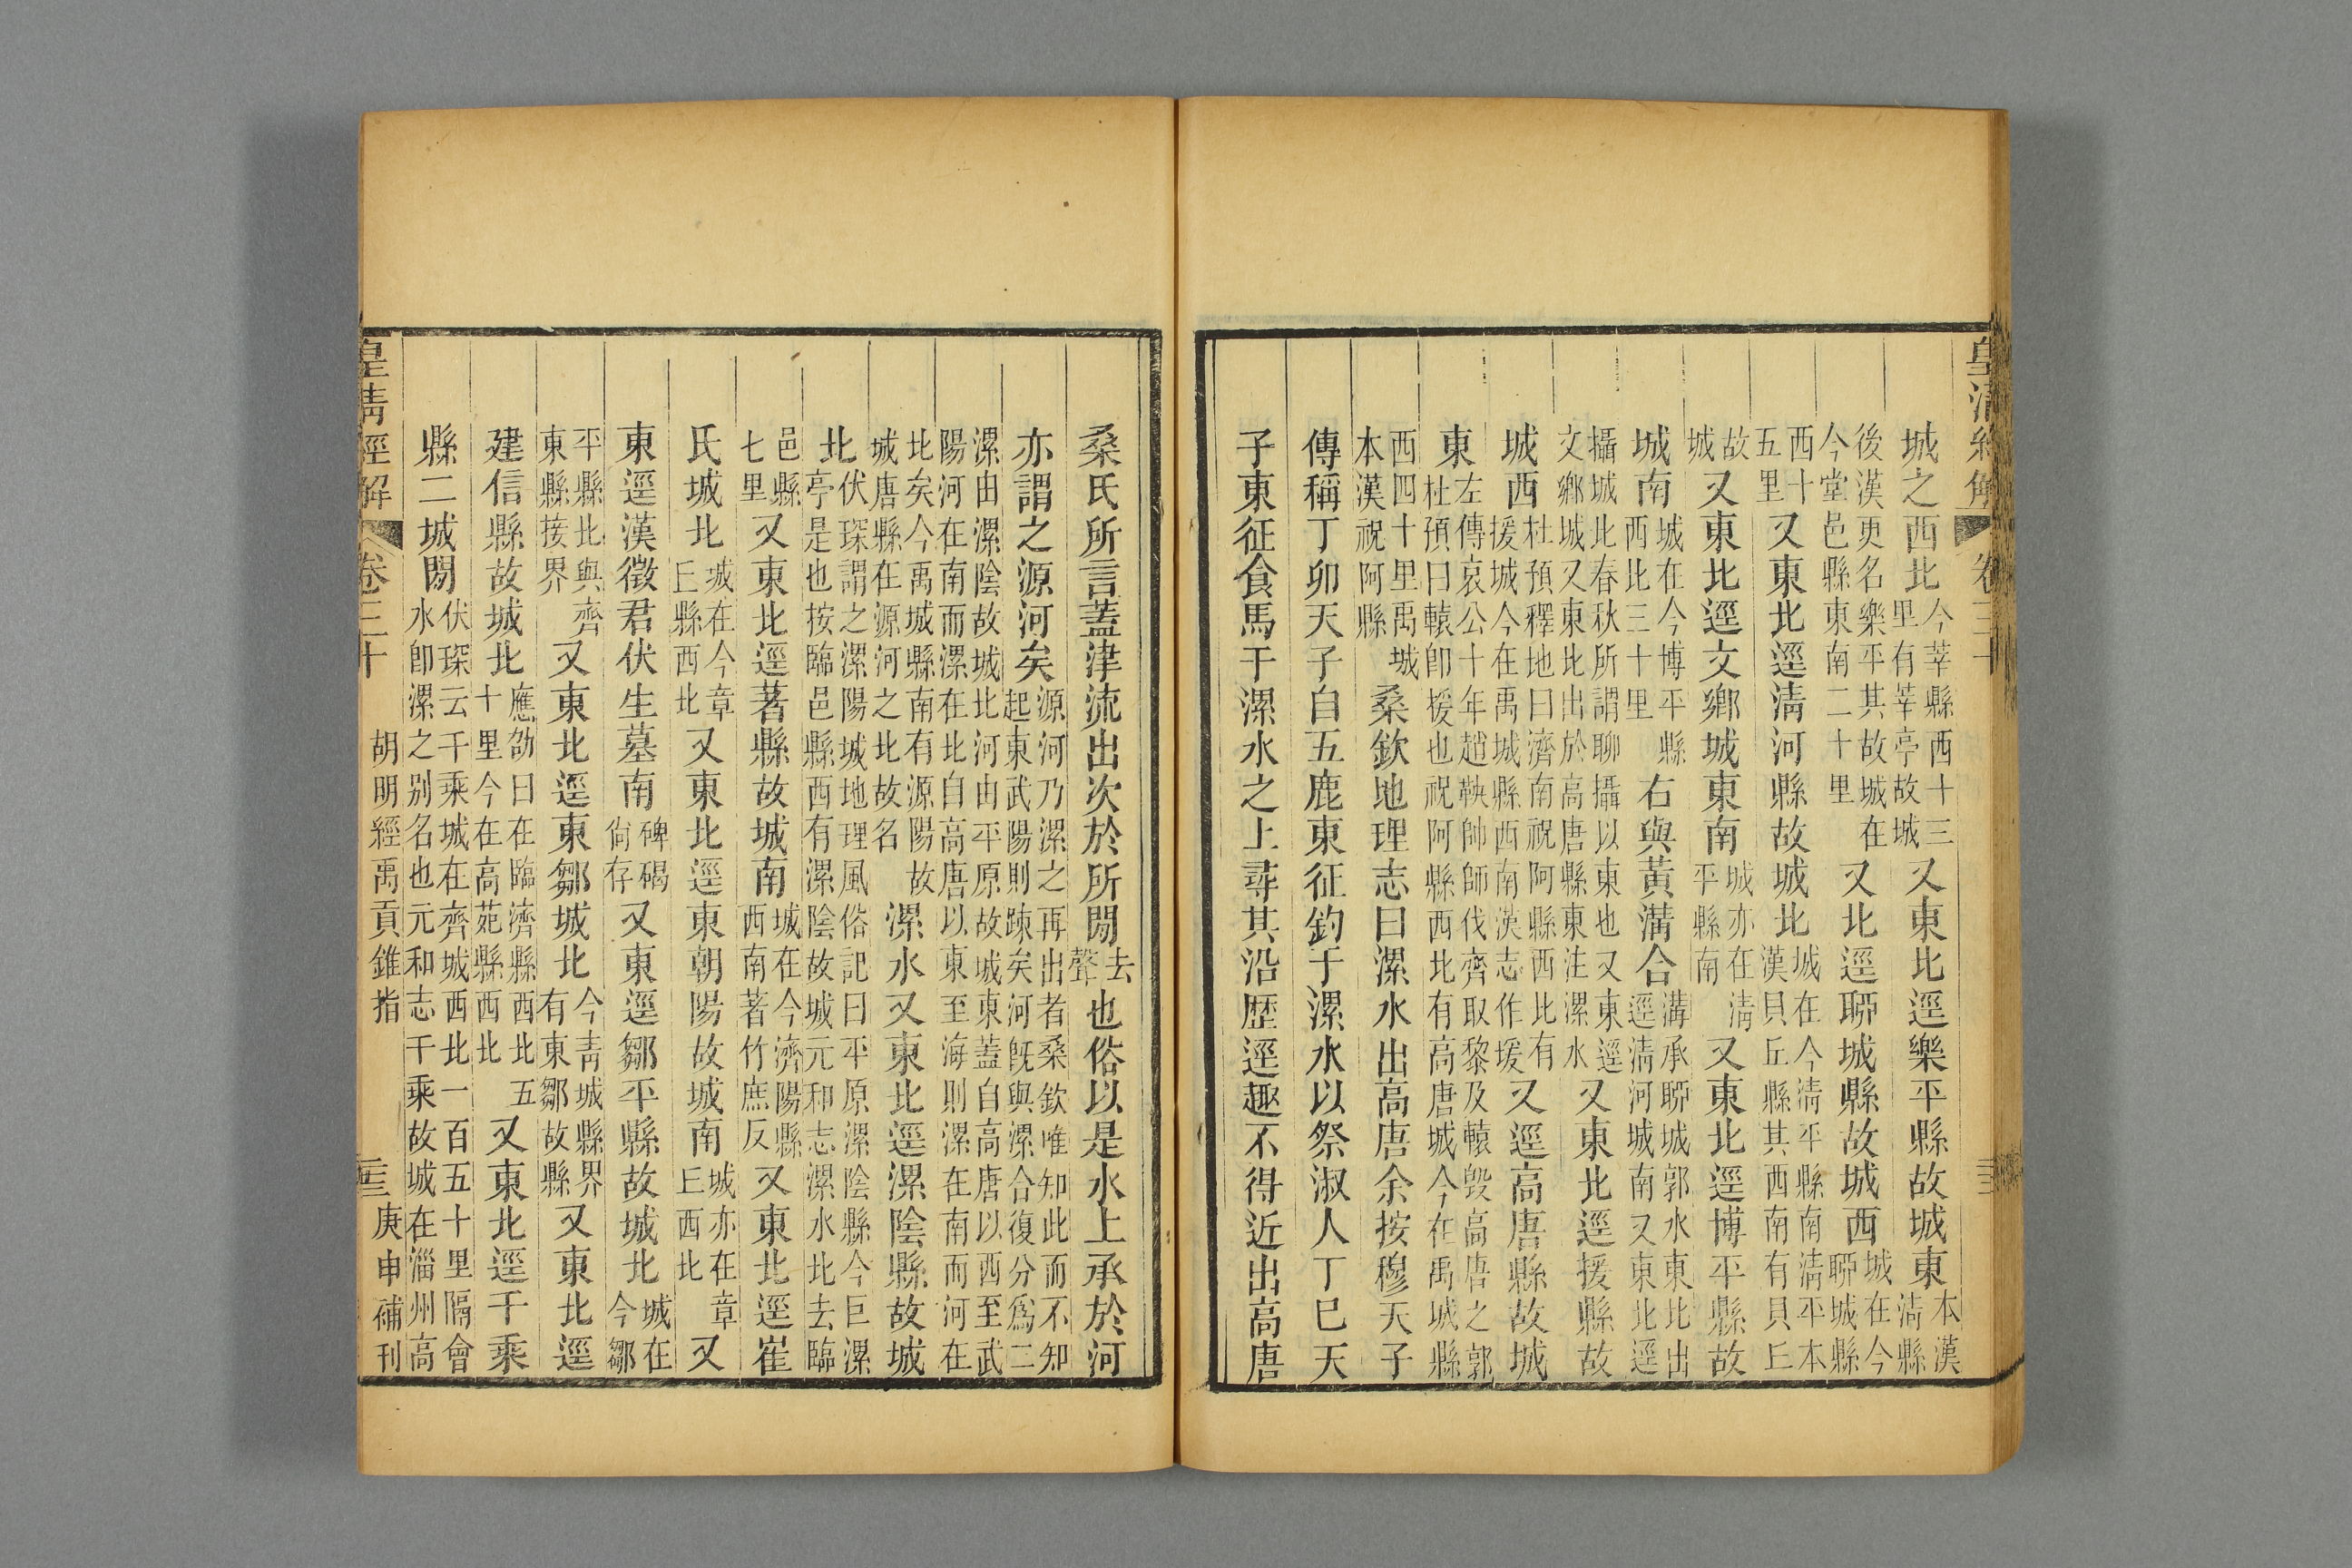 皇清經解 卷三十
城之西北今莘縣西十三里有莘亭故城又東北逕樂平縣故城東本漢清縣
後漢更名樂平其故城在今堂邑縣東南二十里又北逕聊城縣故城西城在今聊城縣
西十五里又東北逕清河縣故城北城在今清平縣南清平本漢貝丘縣其西南有貝丘
故城又東北逕文鄉城東南城亦在清平縣南又東北逕博平縣故
城南城在今博平縣西北三十里右與黃溝合溝承聊城郭水東北出逕清河城南又東北逕
攝城北春秋所謂聊攝以東也又東逕文鄉城又東北出於高唐縣東注漯水又東北逕援縣故
城西杜預釋地曰濟南祝阿縣西北有援城今在禹城縣西南漢志作瑗又逕高唐縣故城
東左傳哀公十年趙鞅帥師伐齊取黎及轅毀高唐之郭杜預曰轅卽援也祝阿縣西北有高唐城今在禹城縣
西四十里禹城本漢祝阿縣桑欽地理志曰漯水出高唐余按穆天子
傳稱丁卯天子自五鹿東征釣于漯水以祭淑人丁巳天
子東征食馬于漯水之上尋其沿歷逕趣不得近出高唐
桑氏所言蓋津流出次於所閒去聲也俗以是水上承於河
亦謂之源河矣源河乃漯之再出者桑欽唯知此而不知起東武陽則踈矣河旣與漯合復分爲二
漯由漯陰故城北河由平原故城東蓋自高唐以西至武陽河在南而漯在北自高唐以東至海則漯在南而河在
北矣今禹城縣南有源陽故城唐縣在源河之北故名漯水又東北逕漯陰縣故城
北伏琛謂之漯陽城地理風俗記曰平原漯陰縣今巨漯亭是也按臨邑縣西有漯陰故城元和志漯水北去臨
邑縣七里又東北逕著縣故城南城在今濟陽縣西南著竹庶反又東北逕崔
氏城北城在今章丘縣西北又東北逕東朝陽故城南城亦在章丘西北又
東逕漢徵君伏生墓南碑碣尙存又東逕鄒平縣故城北城在今鄒
平縣北與齊東縣接界又東北逕東鄒城北今青城縣界有東鄒故縣又東北逕
建信縣故城北應劭曰在臨濟縣西北五十里今在高苑縣西北又東北逕千乘
縣二城閒伏琛云千乘城在齊城西北一百五十里隔會水卽漯之别名也元和志千乘故城在淄州高
皇清經解 卷三十 胡明經禹貢錐指 二十三 庚申補刊